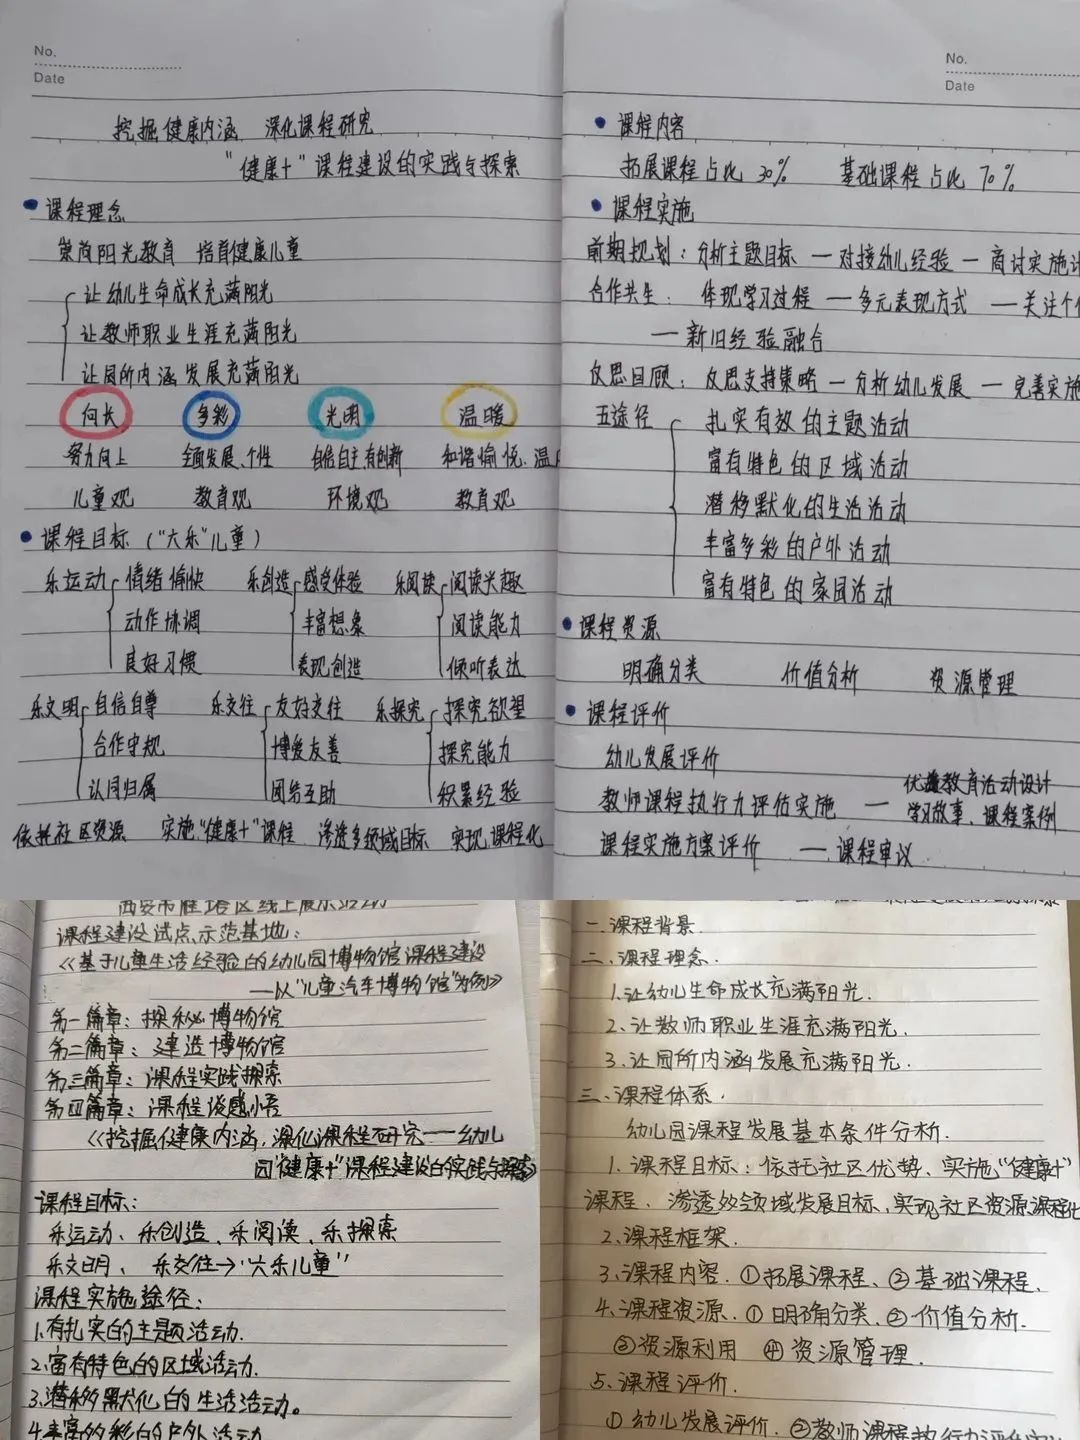 No.
Date
挖掘健康内涵 深化课程研究
“健康+”课程建设的实践与探索
课程理念
崇尚阳光教育 培育健康儿童
让幼儿生命成长充满阳光
让教师职业生涯充满阳光
让园所内涵发展充满阳光
向长 多彩 光明 温暖
努力向上 全面发展、个性 自信自主有创新 和谐愉悦、温
儿童观 教育观 环境观 教育观
课程目标（“六乐”儿童）
乐运动 情绪愉快 乐创造 感受体验 乐阅读 阅读兴趣
动作协调 丰富想象 阅读能力
良好习惯 表现创造 倾听表达
乐文明 自信自尊 乐交往 友好交往 乐探究 探究欲望
合作守规 博爱友善 探究能力
认同归属 团结互助 积累经验
依托社区资源 实施“健康+”课程 渗透多领域目标 实现课程化
No.
Date
课程内容
拓展课程占比 30% 基础课程占比 70%
课程实施
前期规划：分析主题目标 — 对接幼儿经验 — 商讨实施
合作共生：体现学习过程 — 多元表现方式 — 关注个
— 新旧经验融合
反思回顾：反思支持策略 — 分析幼儿发展 — 完善实施
五途径 扎实有效的主题活动
富有特色的区域活动
潜移默化的生活活动
丰富多彩的户外活动
富有特色的家园活动
课程资源
明确分类 价值分析 资源管理
课程评价
幼儿发展评价
教师课程执行力评估实施 — 教育活动设计
学习故事、课程案例
课程实施方案评价 — 课程审议
西安市雁塔区线上展示活动
课程建设试点示范基地：
《基于儿童生活经验的幼儿园博物馆课程建设
—以“儿童汽车博物馆”为例》
第一篇章：探秘博物馆
第二篇章：建造博物馆
第三篇章：课程实践探索
第四篇章：课程谈感小悟
《挖掘健康内涵，深化课程研究——幼儿
园“健康+”课程建设的实践与探索》
课程目标：
乐运动、乐创造、乐阅读、乐探索
乐文明、乐交往→“六乐儿童”
课程实施途径：
1.有扎实的主题活动.
2.富有特色的区域活动.
3.潜移默化的生活活动。
4.丰富的彩的户外活动
一.课程背景.
二.课程理念.
1.让幼儿生命成长充满阳光.
2.让教师职业生涯充满阳光.
3.让园所内涵发展充满阳光.
三.课程体系.
幼儿园课程发展基本条件分析.
1.课程目标：依托社区优势、实施“健康+”
课程、渗透多领域发展目标、实现社区资源课程化
2.课程框架.
3.课程内容.①拓展课程、②基础课程.
4.课程资源.①明确分类、②价值分析.
③资源利用 ④资源管理.
5.课程评价.
①幼儿发展评价.②教师课程执行力评